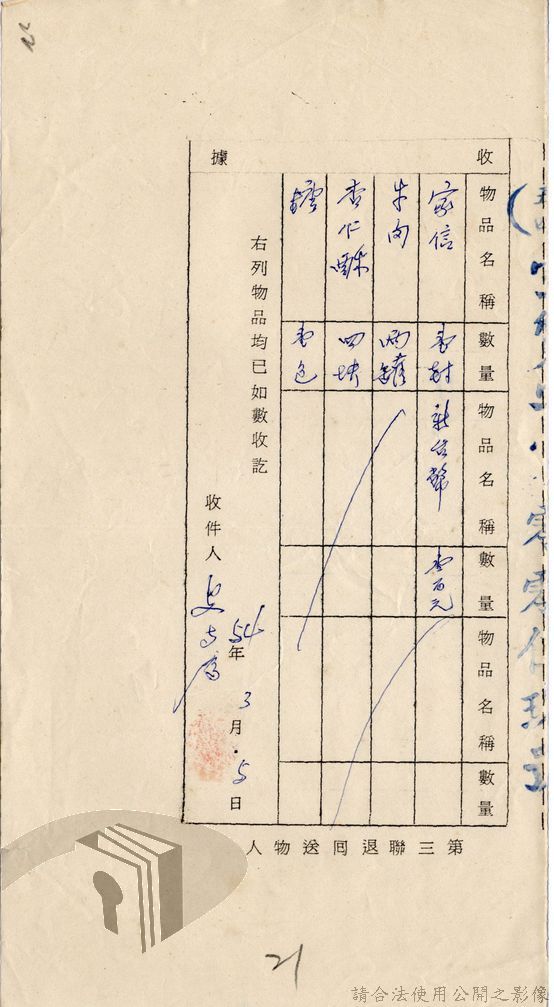 收據
物品名稱 數量 物品名稱 數量 物品名稱 數量
家信 壹封 新台幣 壹百元
牛肉 兩罐
杏仁酥 四塊
壹包
右列物品均已如數收訖
收件人
54年3月5日
第三聯退回送物人
21
請合法使用公開之影像